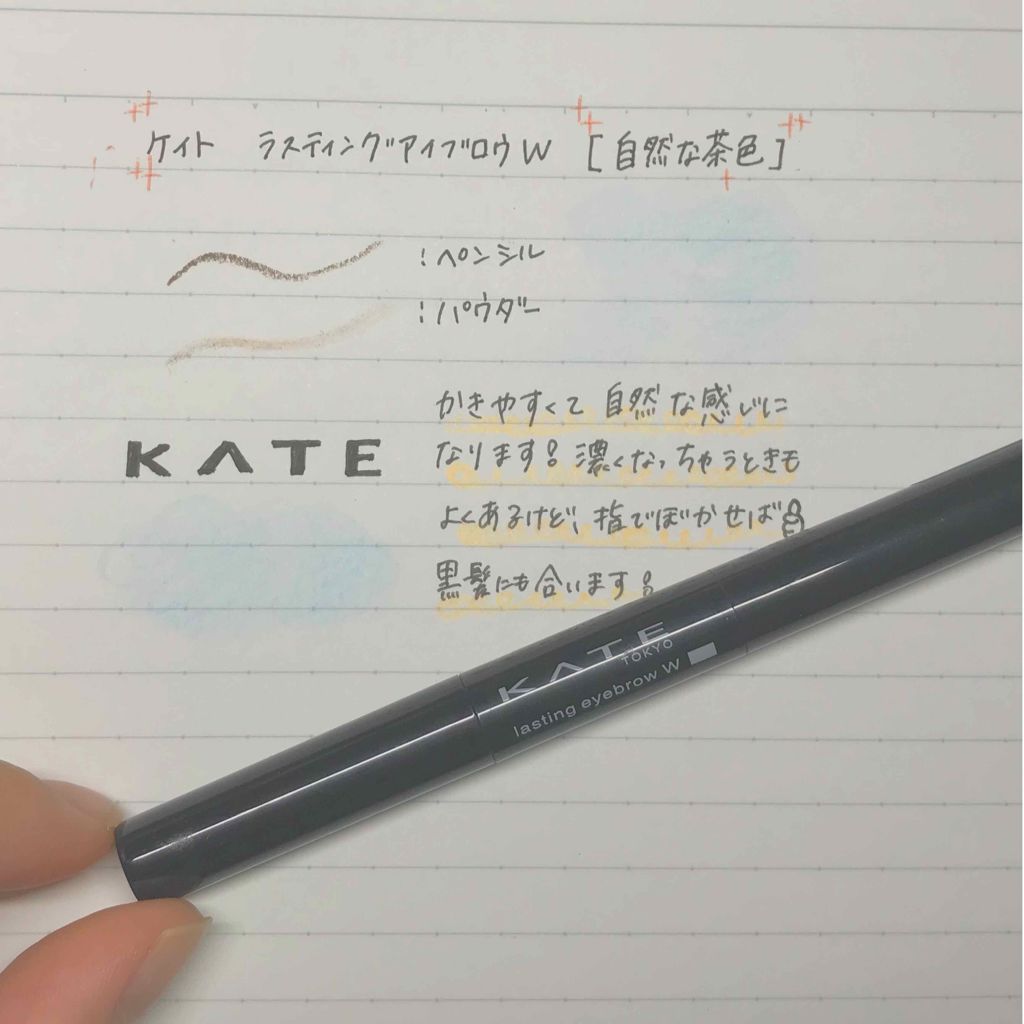 ケイト ラスティングアイブロウW [自然な茶色]
:ペンシル
:パウダー
KATE
かきやすくて 自然な感じに
なります!濃くなっちゃうときも
よくあるけど、指でぼかせば!!
黒髪にも合います!
KATE
TOKYO
lasting eyebrow W